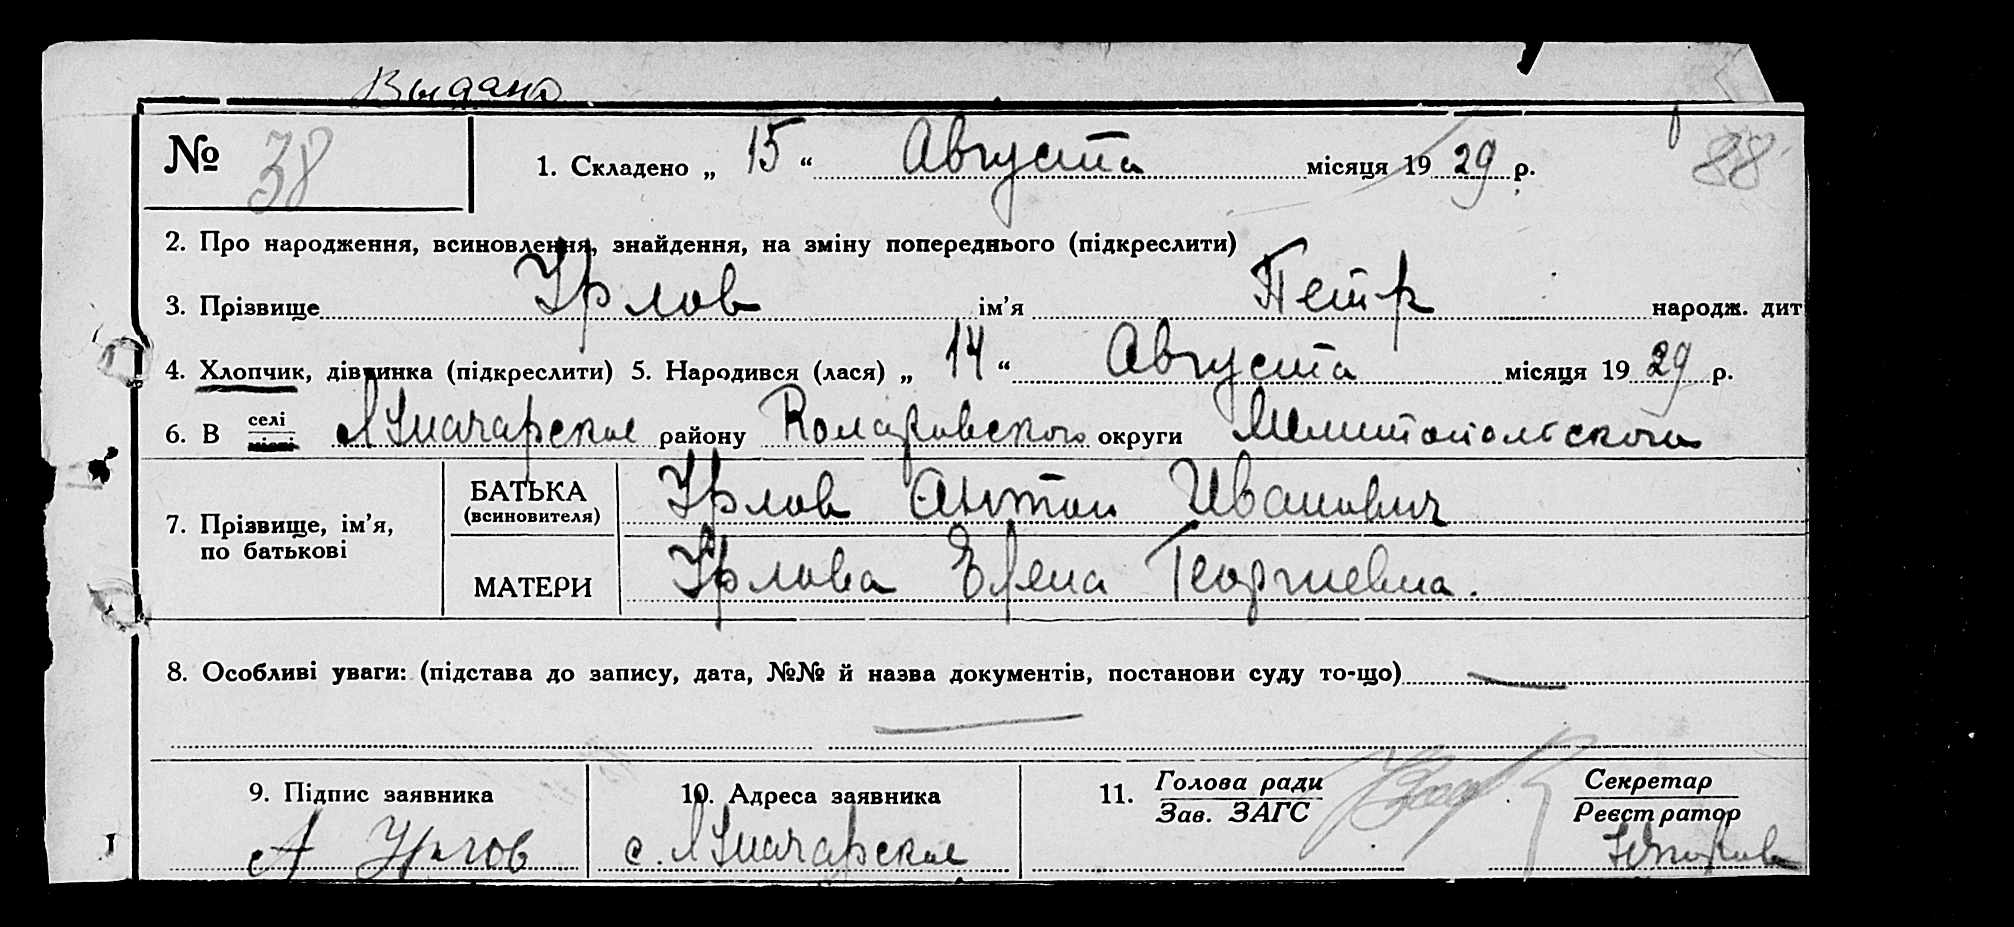 Выдано
№ 38 1. Складено „ 15 “ Августа місяця 1929 р. 88
2. Про народження, всиновлення, знайдення, на зміну попереднього (підкреслити)
3. Прізвище Урлов ім’я Петр народж. дит
4. Хлопчик, дівчинка (підкреслити) 5. Народився (лася) „ 14 “ Августа місяця 1929 р.
6. В селі Луначарское району Коларовского округи Мелитопольского
7. Прізвище, ім’я, по батькові
БАТЬКА (всиновителя) Урлов Антон Иванович
МАТЕРИ Урлова Елена Георгиевна.
8. Особливі уваги: (підстава до запису, дата, №№ й назва документів, постанови суду то-що)
9. Підпис заявника 10. Адреса заявника 11. Голова ради Секретар
Зав. ЗАГС Реєстратор
А Урлов с. Луначарское